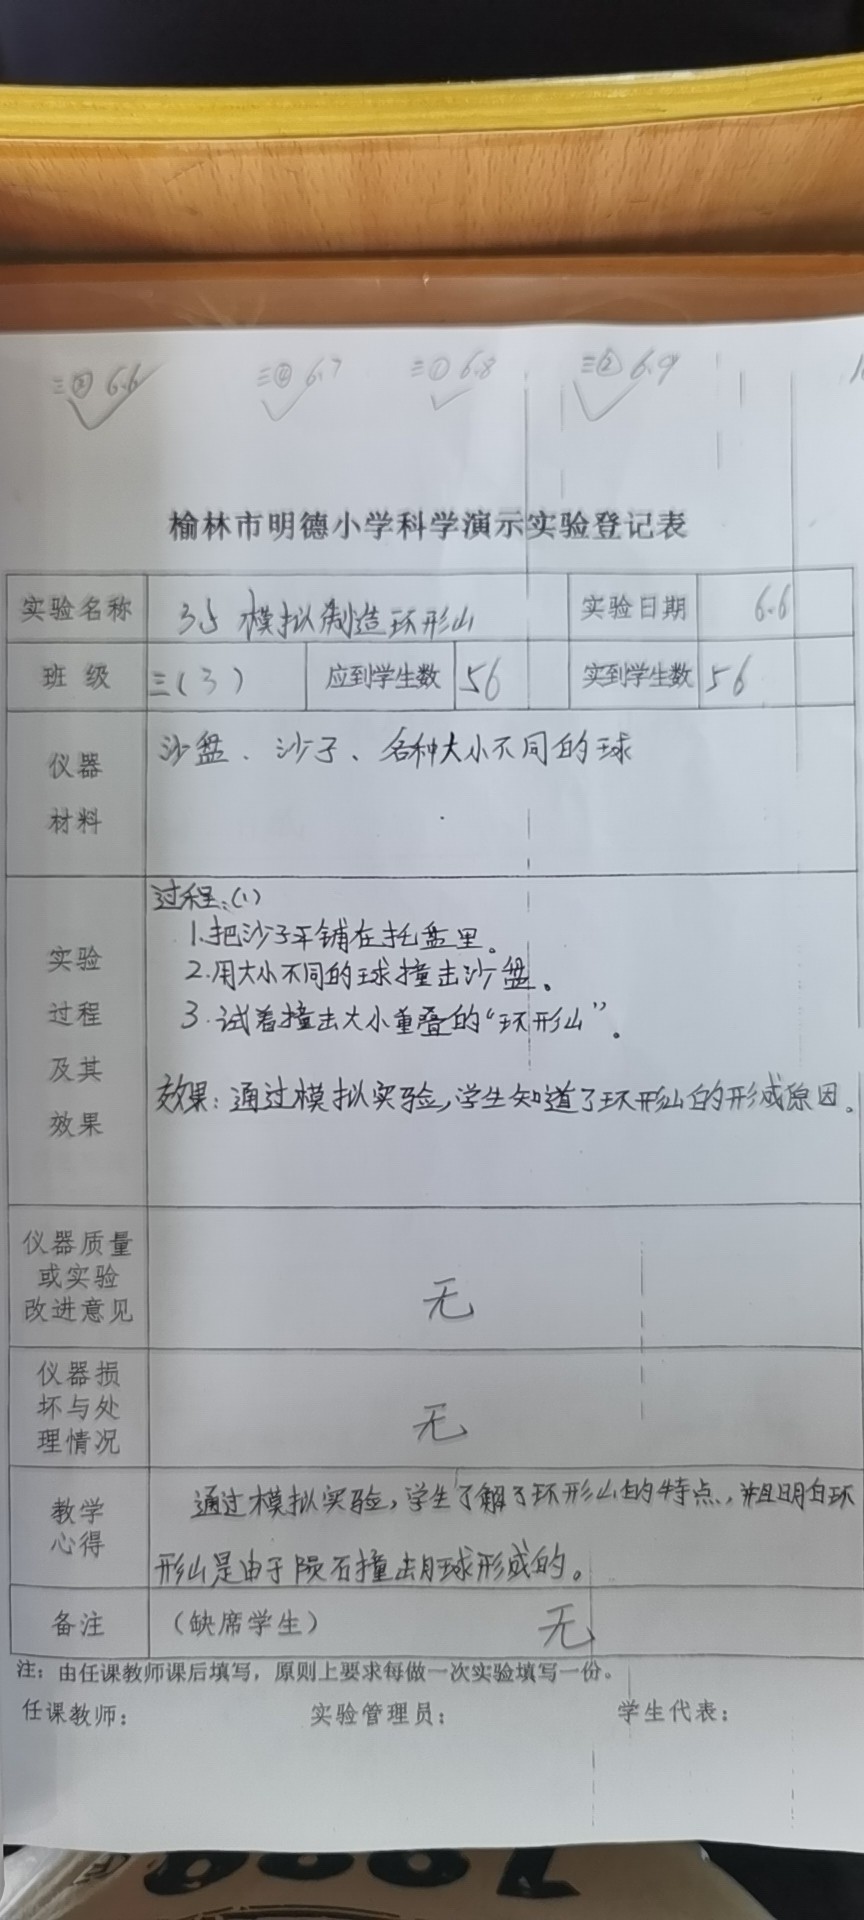 三③ 6.6 三④ 6.7 三① 6.8 三② 6.9
榆林市明德小学科学演示实验登记表
实验名称 3.5 模拟制造环形山 实验日期 6.6
班级 三(3) 应到学生数 56 实到学生数 56
仪器
材料
沙盘、沙子、各种大小不同的球
实验
过程
及其
效果
过程:(1)
1.把沙子平铺在托盘里。
2.用大小不同的球撞击沙盘。
3.试着撞击大小重叠的“环形山”。
效果:通过模拟实验,学生知道了环形山的形成原因。
仪器质量
或实验
改进意见
无
仪器损
坏与处
理情况
无
教学
心得
通过模拟实验,学生了解了环形山的特点,并且明白环
形山是由于陨石撞击月球形成的。
备注 (缺席学生) 无
注:由任课教师课后填写,原则上要求每做一次实验填写一份。
任课教师: 实验管理员: 学生代表: